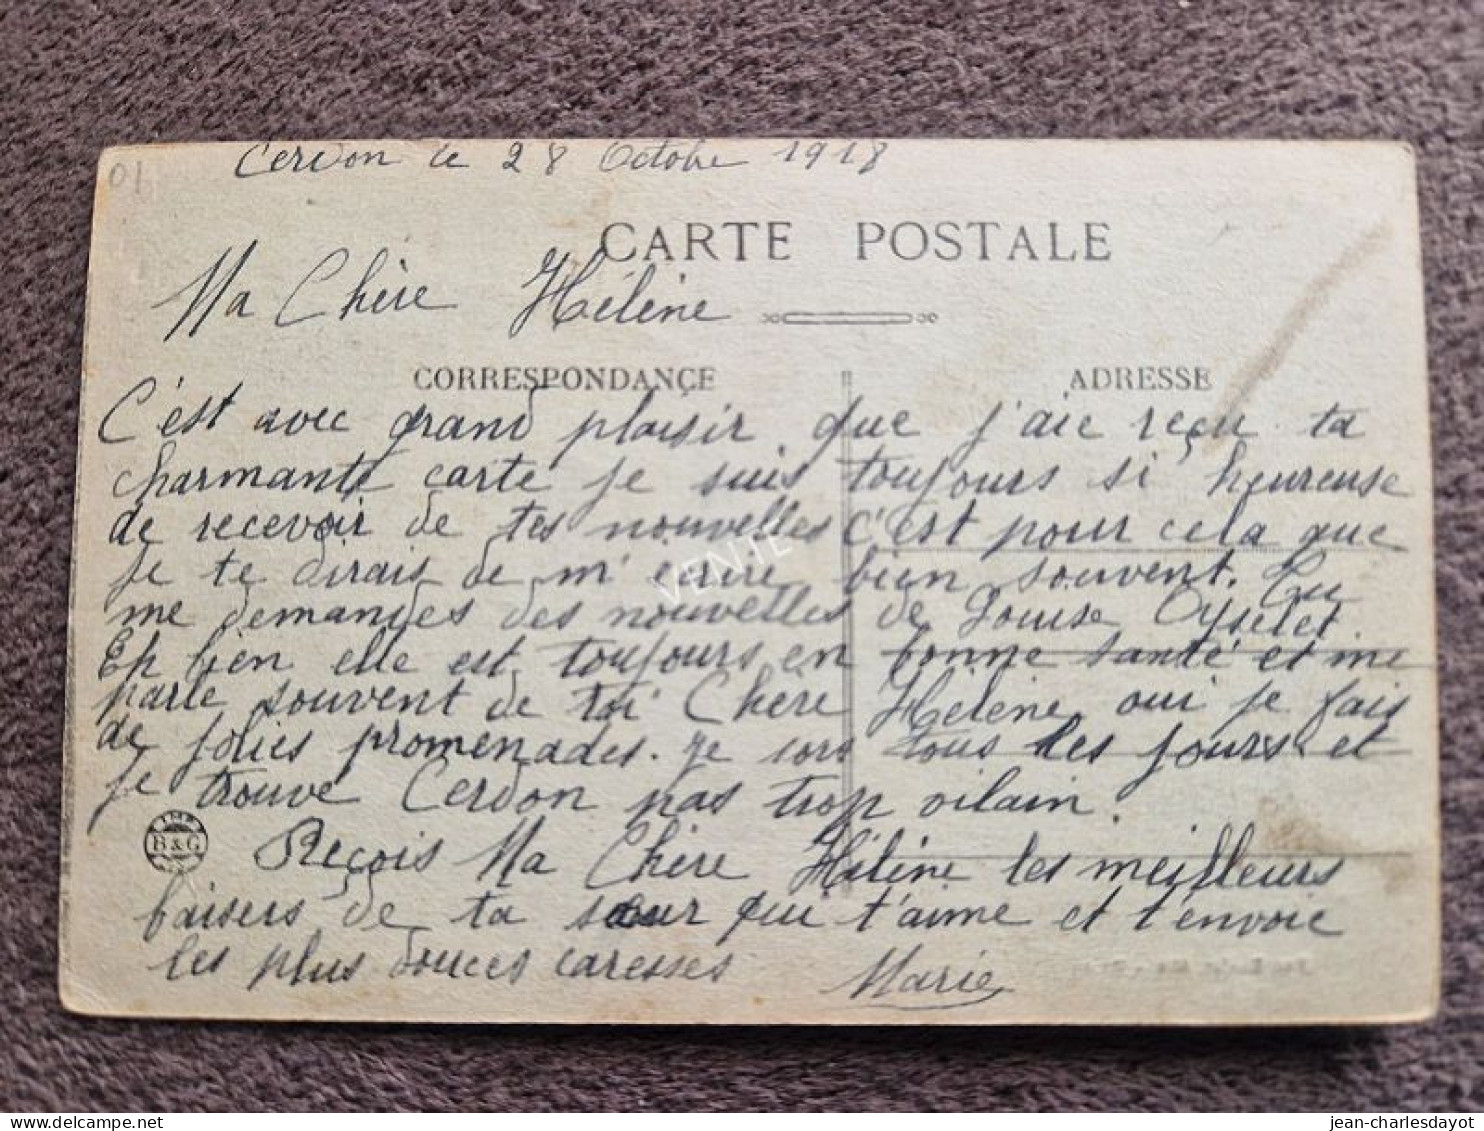 01
Cerdon le 28 Octobre 1918
CARTE POSTALE
Ma Chère Hélène
CORRESPONDANCE ADRESSE
C'est avec grand plaisir que j'aie reçu ta
charmante carte je suis toujours si heureuse
de recevoir de tes nouvelles c'est pour cela que
je te dirais de m'écrire bien souvent. Tu
me demandes des nouvelles de Louise
Eh bien elle est toujours en bonne santé et me
parle souvent de toi Chère Hélène oui je fais
de jolies promenades. je sors tous les jours et
je trouve Cerdon pas trop vilain.
B & G
Reçois Ma Chère Hélène les meilleurs
baisers de ta sœur qui t'aime et t'envoie
les plus douces caresses Marie
VENTE
jean-charlesdayot
delcampe.net